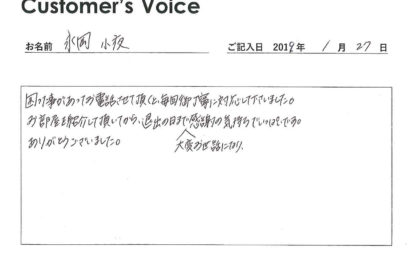 Customer's Voice
お名前 永岡 小夜 ご記入日 2019年 1月27日
困り事があってお電話させて頂くと、毎回御丁寧に対応して下さいました。
お部屋を紹介して頂いてから、退出の日まで感謝の気持ちでいっぱいです。
ありがとうございました。 大変お世話になり、